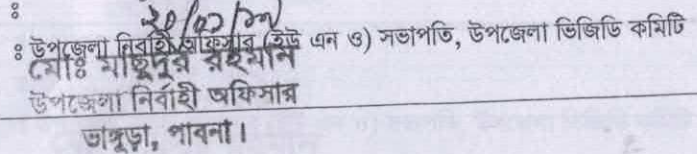 ঃ ২০/০১/১৯
ঃ উপজেলা নির্বাহী অফিসার (ইউ এন ও) সভাপতি, উপজেলা ভিজিডি কমিটি
মোঃ মাছুদুর রহমান
উপজেলা নির্বাহী অফিসার
ভাঙ্গুড়া, পাবনা।